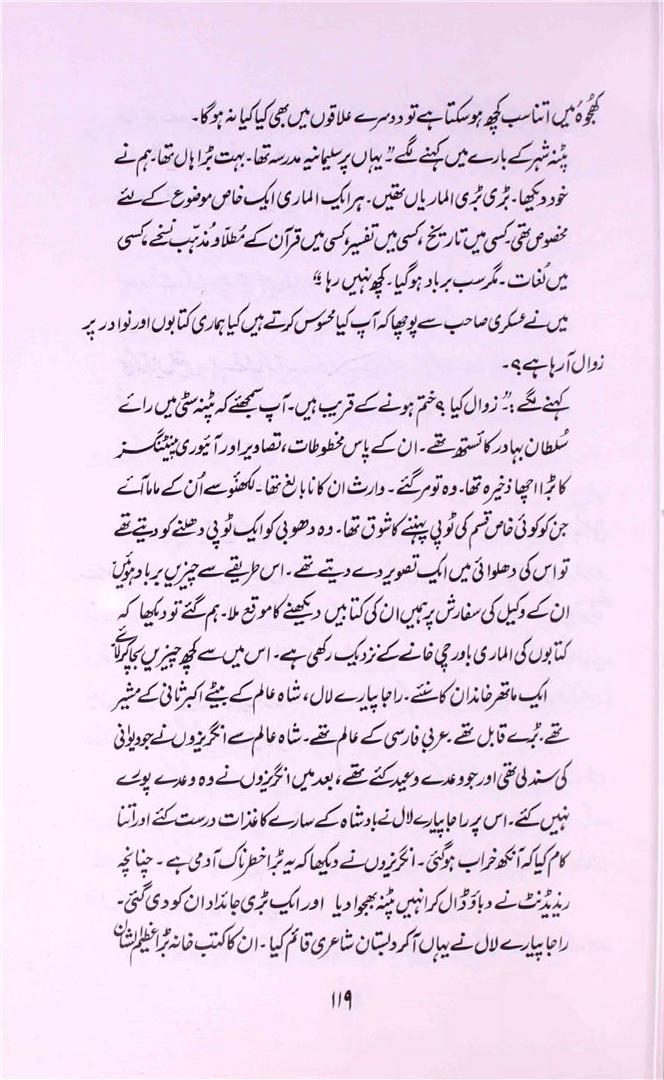 کھجُوہ میں اتنا سب کچھ ہو سکتا ہے تو دوسرے علاقوں میں بھی کیا کیا نہ ہوگا۔
پٹنہ شہر کے بارے میں کہنے لگے ”یہاں پر سلیمانیہ مدرسہ تھا۔ بہت بڑا ہال تھا۔ ہم نے
خود دیکھا۔ بڑی بڑی الماریاں تھیں۔ ہر ایک الماری ایک خاص موضوع کے لئے
مخصوص تھی۔ کسی میں تاریخ، کسی میں تفسیر، کسی میں قرآن کے مُطلّا و مُذہّب نسخے، کسی
میں لُغات۔ مگر سب برباد ہوگیا۔ کچھ نہیں رہا۔“
میں نے عسکری صاحب سے پوچھا کہ آپ کیا محسوس کرتے ہیں کیا ہماری کتابوں اور نوادر پر
زوال آرہا ہے؟۔
کہنے لگے:۔ ”زوال کیا؟ ختم ہونے کے قریب ہیں۔ آپ سمجھئے کہ پٹنہ سٹی میں رائے
سُلطان بہادر کائستھ تھے۔ ان کے پاس مخطوطات، تصاویر اور آئیوری پینٹنگز
کا بڑا اچھا ذخیرہ تھا۔ وہ تو مر گئے۔ وارث ان کا نابالغ تھا۔ لکھنؤ سے اُن کے ماما آئے
جن کو کوئی خاص قسم کی ٹوپی پہننے کا شوق تھا۔ وہ دھوبی کو ایک ٹوپی دھلنے کو دیتے تھے
تو اس کی دھلوائی میں ایک تصویر دے دیتے تھے۔ اس طریقے سے چیزیں برباد ہوئیں
ان کے وکیل کی سفارش پر ہمیں ان کی کتابیں دیکھنے کا موقع ملا۔ ہم گئے تو دیکھا کہ
کتابوں کی الماری باورچی خانے کے نزدیک رکھی ہے۔ اس میں سے کچھ چیزیں بچا کر لائے
ایک ماتھر خاندان کا سنئے۔ راجا پیارے لال، شاہ عالم کے بیٹے اکبر ثانی کے مشیر
تھے۔ بڑے قابل تھے۔ عربی فارسی کے عالم تھے۔ شاہ عالم سے انگریزوں نے جو دیوانی
کی سند لی تھی اور جو وعدے وعید کئے تھے، بعد میں انگریزوں نے وہ وعدے پورے
نہیں کئے۔ اس پر راجا پیارے لال نے بادشاہ کے سارے کاغذات درست کئے اور اتنا
کام کیا کہ آنکھ خراب ہوگئی۔ انگریزوں نے دیکھا کہ یہ بڑا خطرناک آدمی ہے۔ چنانچہ
ریذیڈنٹ نے دباؤ ڈال کر انہیں پٹنہ بھجوا دیا اور ایک بڑی جائداد ان کو دی گئی۔
راجا پیارے لال نے یہاں آکر دبستان شاعری قائم کیا۔ ان کا کتب خانہ بڑا عظیم الشان
۱۱۹